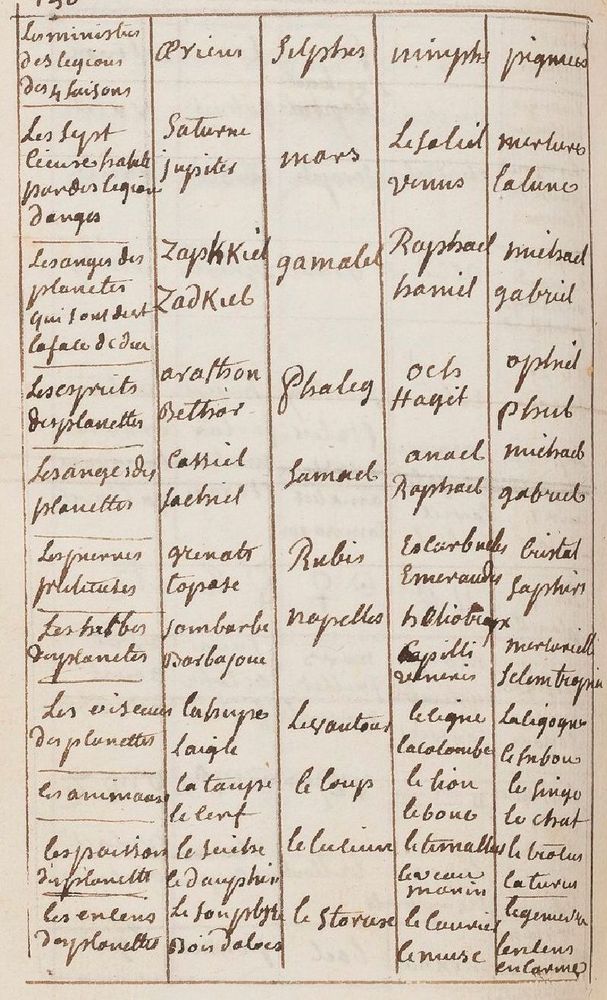 Les ministres
des legions
des 4 saisons
Ærieus
Silphes
nimphs
pigmees
Les sept
par des legion
d'anges
Saturne
jupiter
mars
Le soleil
venus
merture
la lune
Les anges des
planetes
qui sont devt
la face de dieu
Zaphkiel
Zadkiel
gamalel
Raphael
haniel
michael
gabriel
Les esprits
des planettes
arathon
Bethor
Phaleg
och
Hagit
ophiel
Phul
Les anges des
planettes
Cassiel
Sachiel
Samael
anael
Raphael
michael
gabriel
Les pierres
pretieuses
grenats
topase
Rubis
Escarbucles
Emeraudes
Cristal
Saphirs
Les herbes
des planetes
Jombarbe
Barbajoue
napelles
heliotrope
Capilli
veneris
Les oiseaux
des planettes
la hupe
l'aigle
Le vautour
le cigne
la colombe
La cigogne
le hibou
les animaux
la taupe
le cerf
le loup
le lion
le bouc
le singe
le chat
les poisson
des planette
le dauphin
le veau
marin
les encens
des planettes
Le souphre
Bois daloes
le Storaxe
le laurier
le musc
lencens
en larme